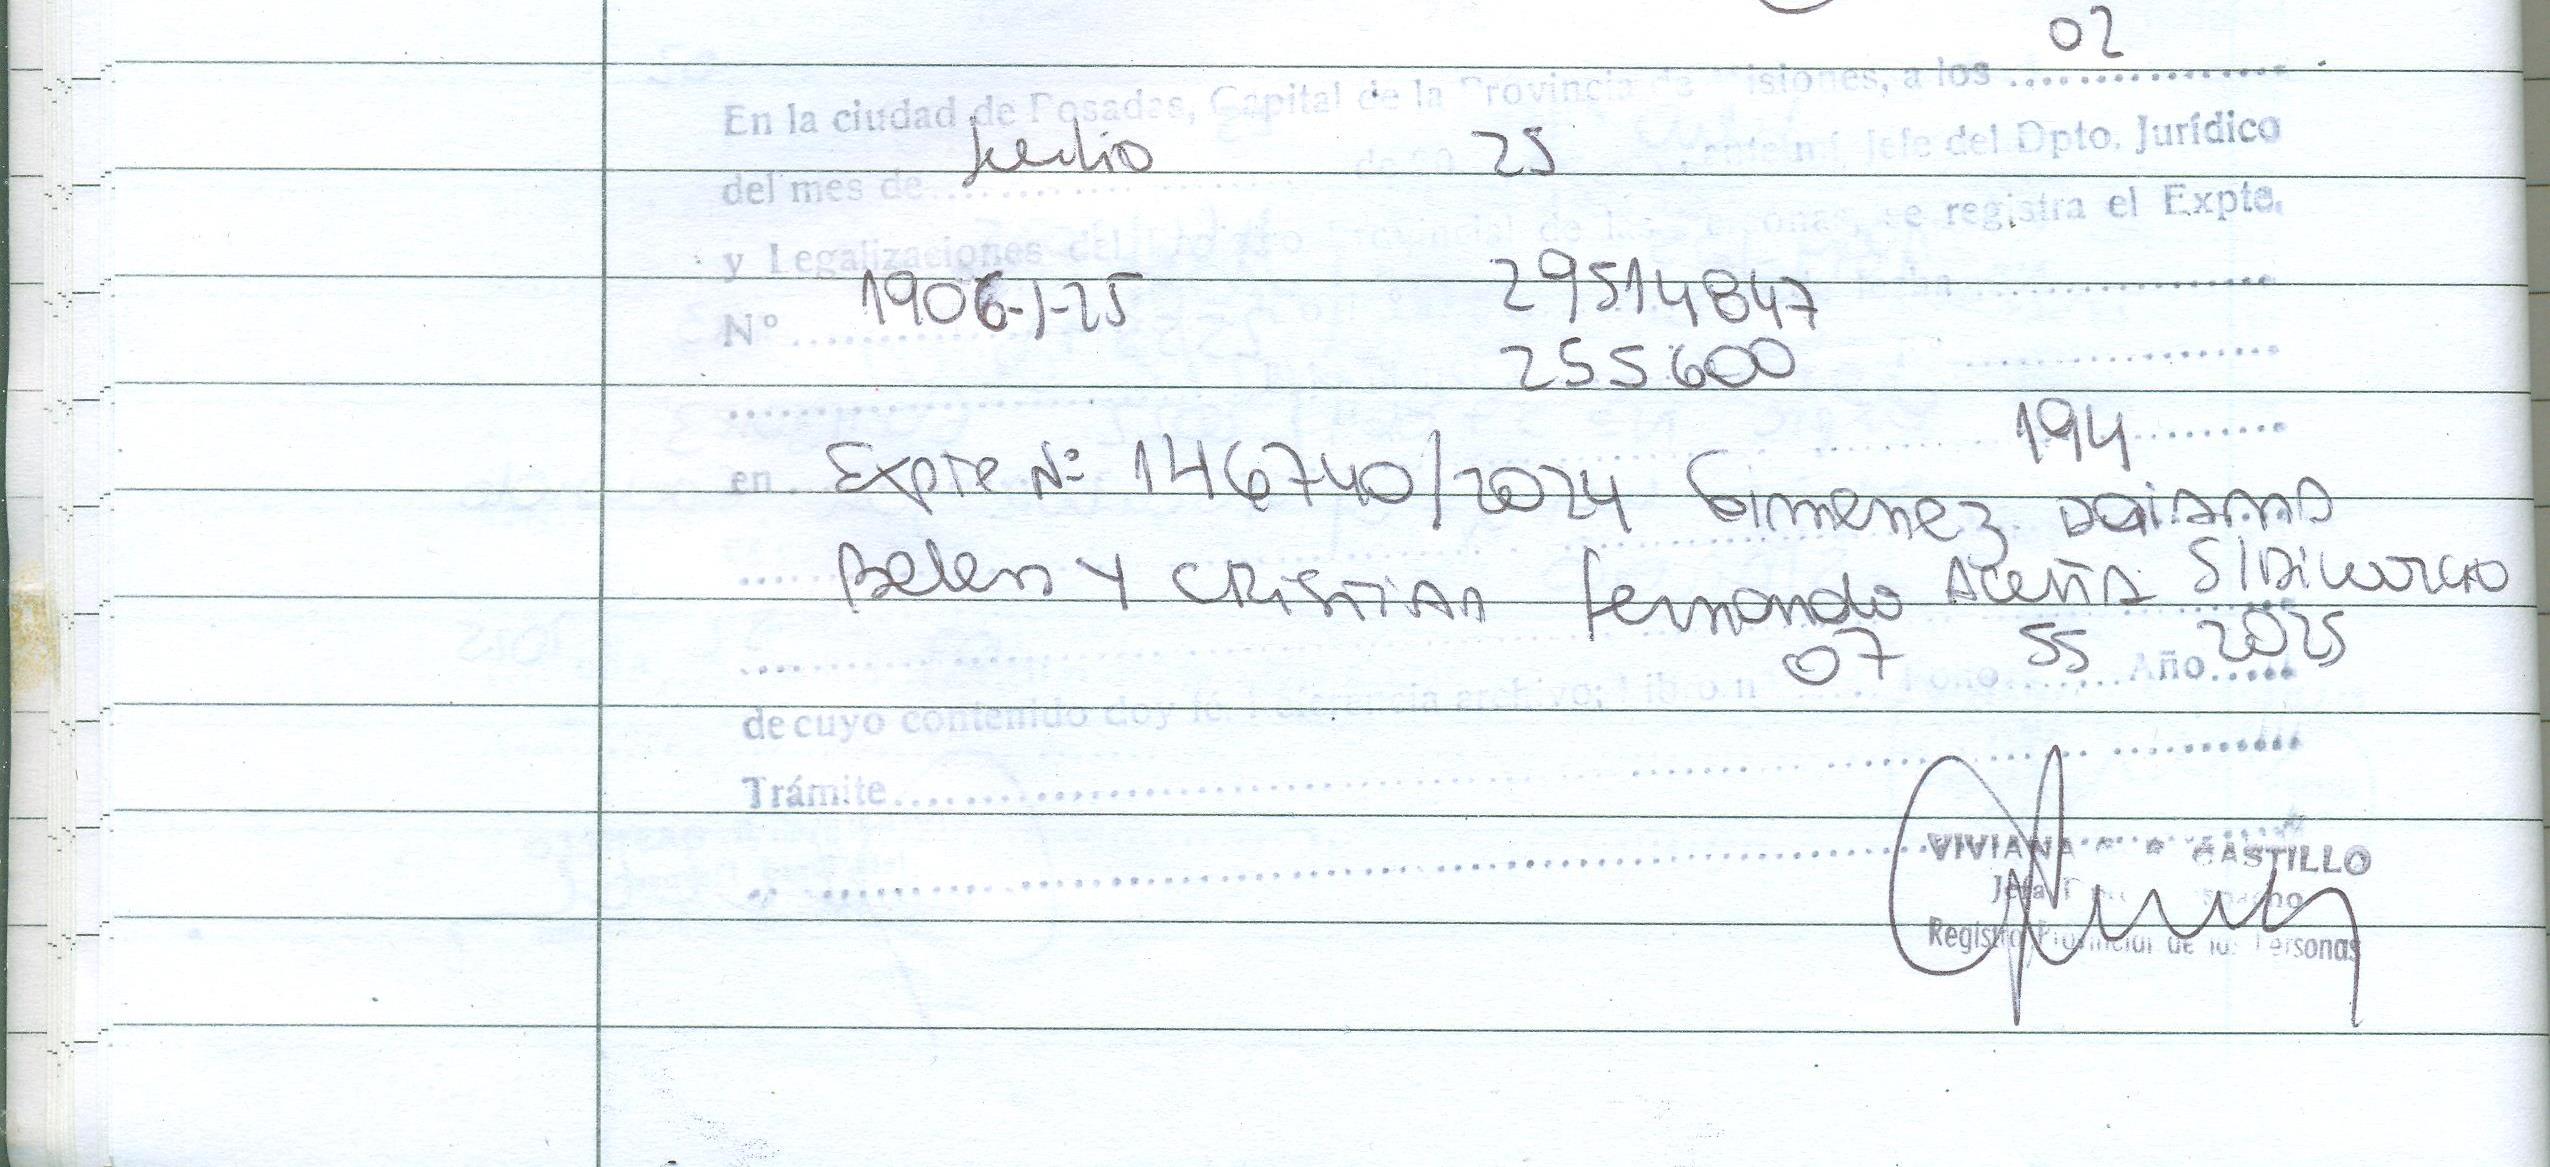 02
En la ciudad de Posadas, Capital de la Provincia de Misiones, a los ..................
Julio 25
del mes de ........................ de 20 ......, ante mí Jefe del Dpto. Jurídico
y Legalizaciones del Registro Provincial de las Personas, se registra el Expte.
1906-J-25 29514847
Nº ..................
255600
194
en . Expte Nº 146740/2024 Gimenez Daiana
Belen y Cristian Fernando Acuña S/Divorcio
07 55 2025
de cuyo contenido doy fé. Referencia archivo; Libro nº ...... Folio ........ Año ......
Trámite ..................
VIVIANA CASTILLO
Jefa
Registro Provincial de las Personas